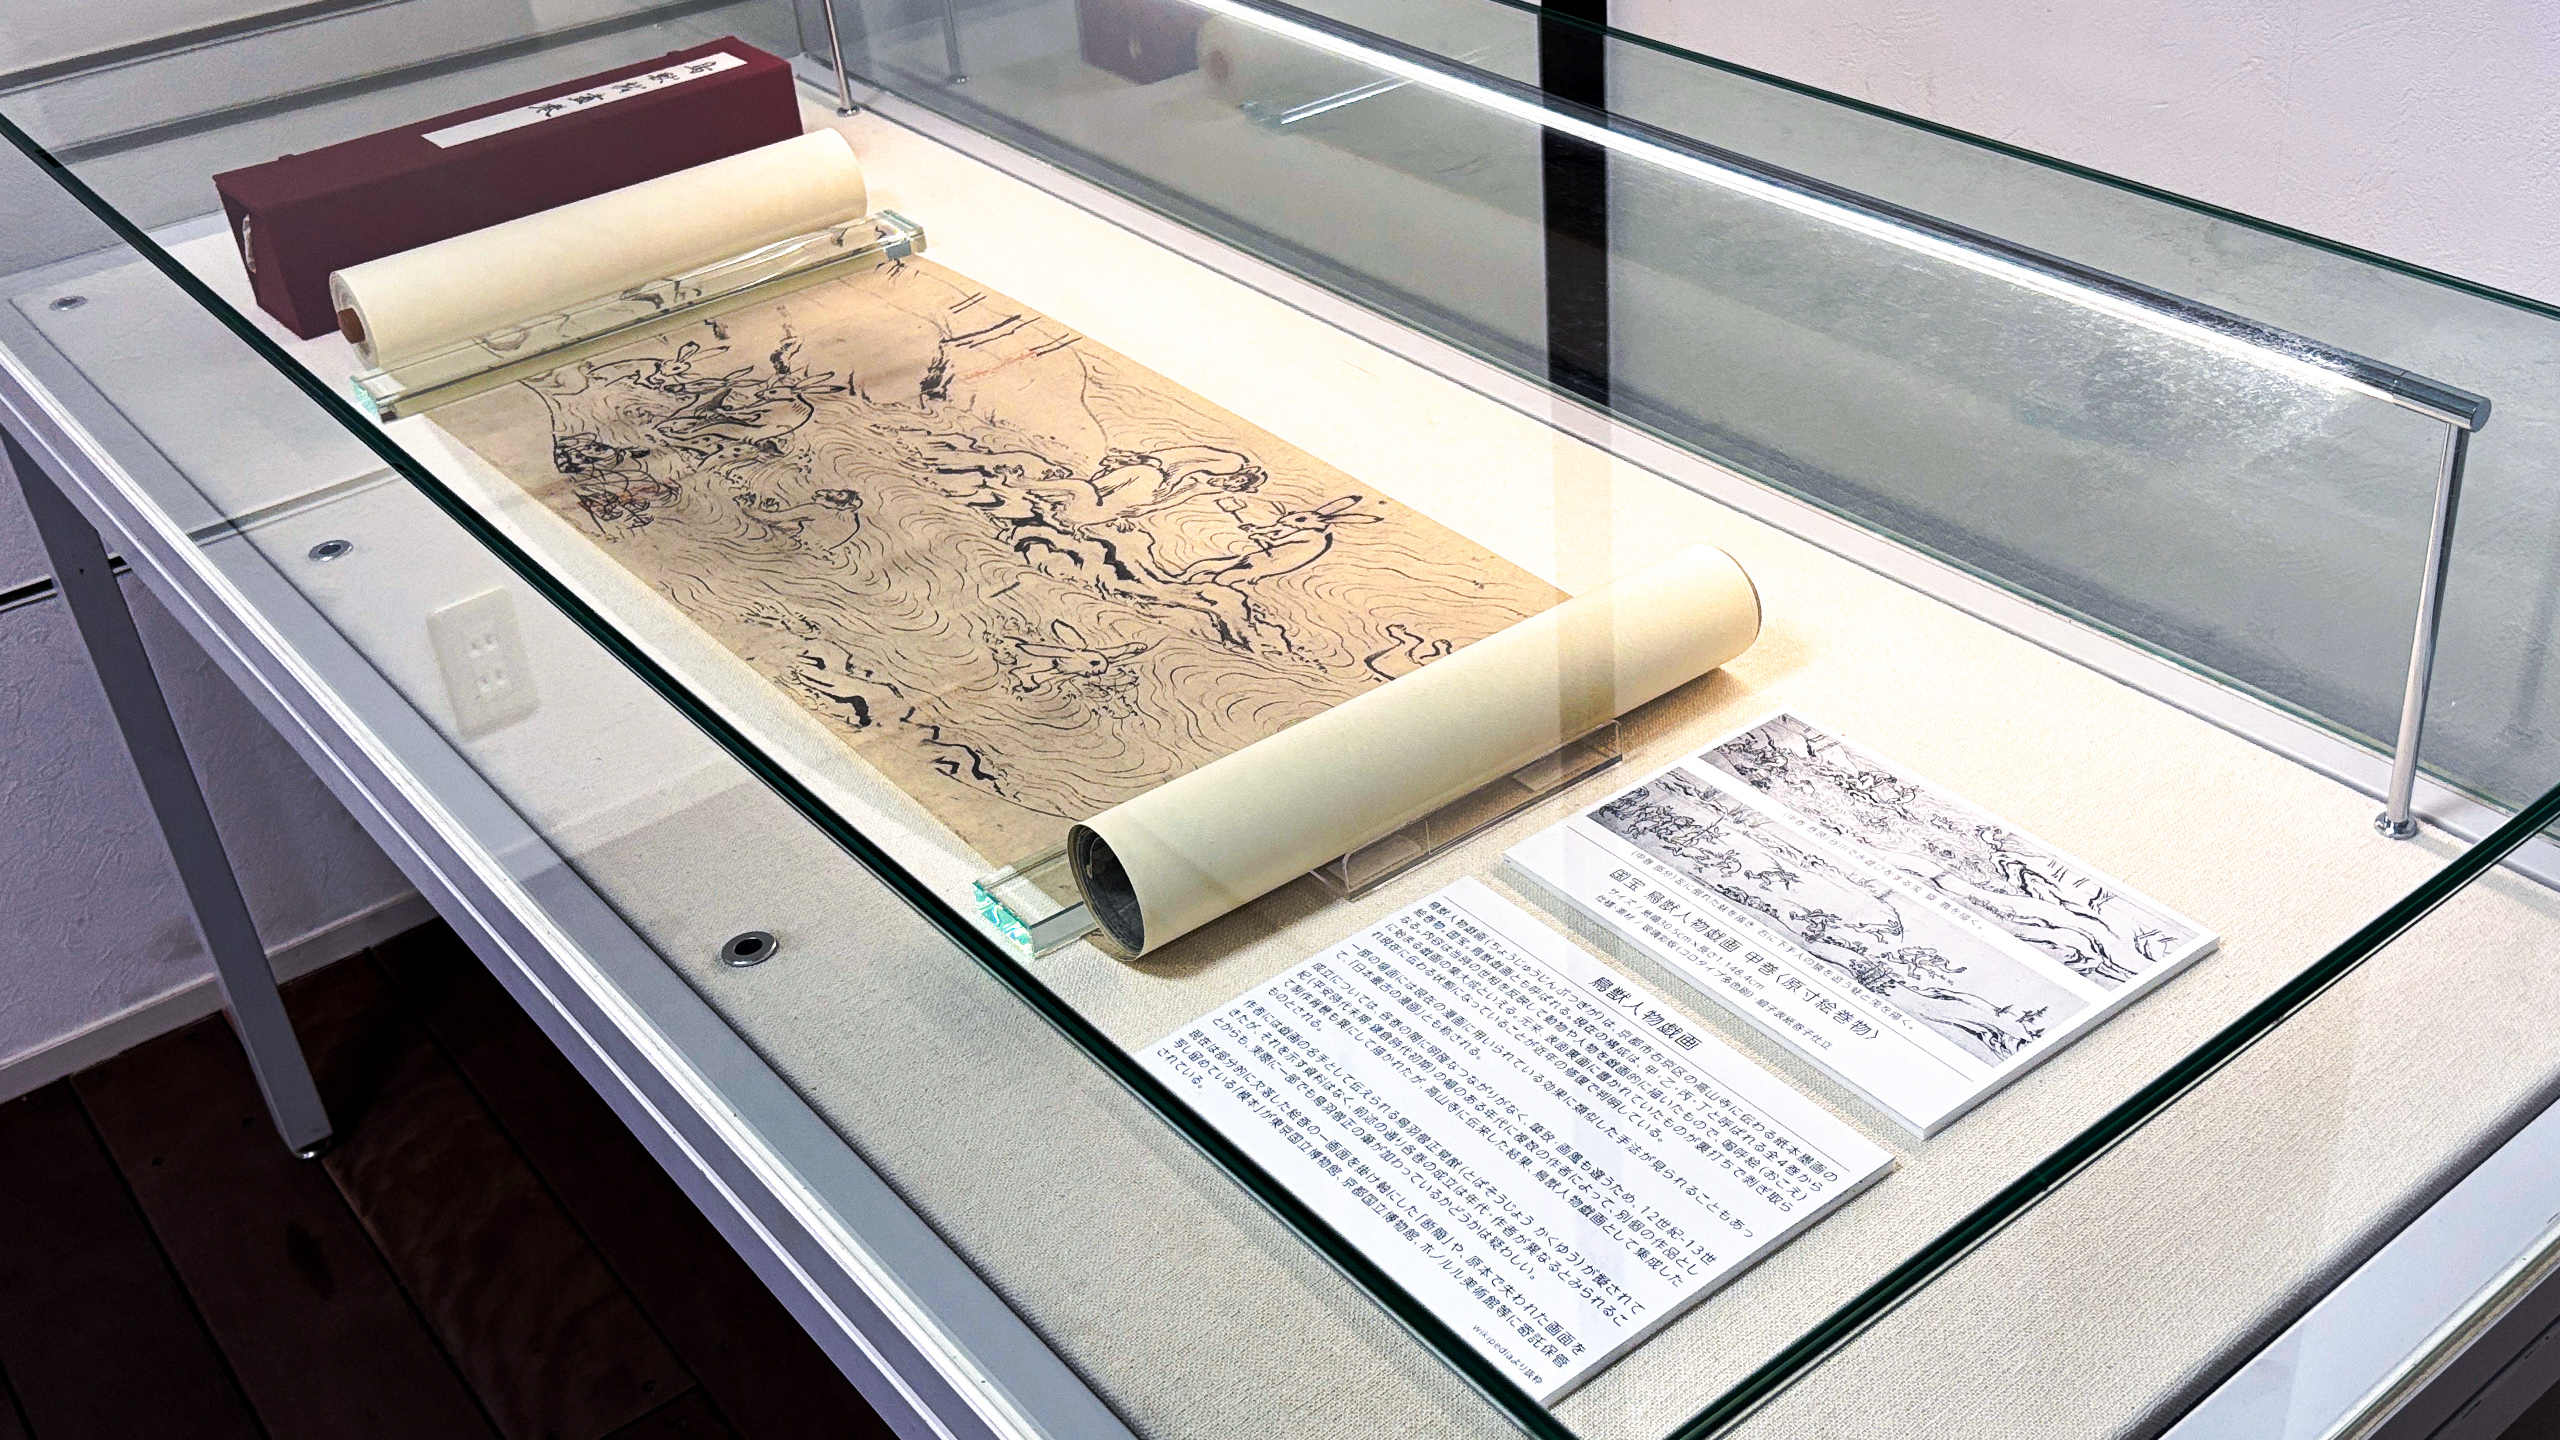 鳥獣戯画巻
国宝 鳥獣人物戯画 甲巻〈原寸絵巻物〉
サイズ / 紙幅30.5cm×長さ1148.4cm
仕様・素材 / 玻璃彩版(コロタイプ多色刷) 緞子表紙巻子仕立
鳥獣人物戯画
鳥獣人物戯画(ちょうじゅうじんぶつぎが)は、京都市右京区の高山寺に伝わる紙本墨画の
絵巻物。国宝。鳥獣戯画とも呼ばれる。現在の構成は、甲・乙・丙・丁と呼ばれる全4巻から
なる。内容は当時の世相を反映して動物や人物を戯画的に描いたもので、嗚呼絵(おこえ)
に始まる戯画の集大成といえる。元来、表面裏面に書かれていたものが裏打ちで剥ぎ取ら
れ現在に伝わる状態になっていることが近年の修復で判明している。
一部の場面には現在の漫画に用いられている効果に類似した手法が見られることもあっ
て、「日本最古の漫画」とも称される。
成立については、各巻の間に明確なつながりがなく、筆致・画風も違うため、12世紀-13世
紀(平安時代末期-鎌倉時代初期)の幅のある年代に複数の作者によって、別個の作品とし
て制作背景も異にして描かれたが、高山寺に伝来した結果、鳥獣人物戯画として集成した
ものとされる。
作者には戯画の名手として伝えられる鳥羽僧正覚猷(とばそうじょう かくゆう)が擬されて
きたが、それを示す資料はなく、前述の通り各巻の成立は年代・作者が異なるとみられるこ
とからも、実際に一部でも鳥羽僧正の筆が加わっているかどうかは疑わしい。
現在は部分的に欠落した絵巻の一画面を掛け軸にした「断簡」や、原本で失われた画面を
写し留めている「模本」が東京国立博物館、京都国立博物館、ホノルル美術館等に寄託保管
されている。
wikipediaより抜粋